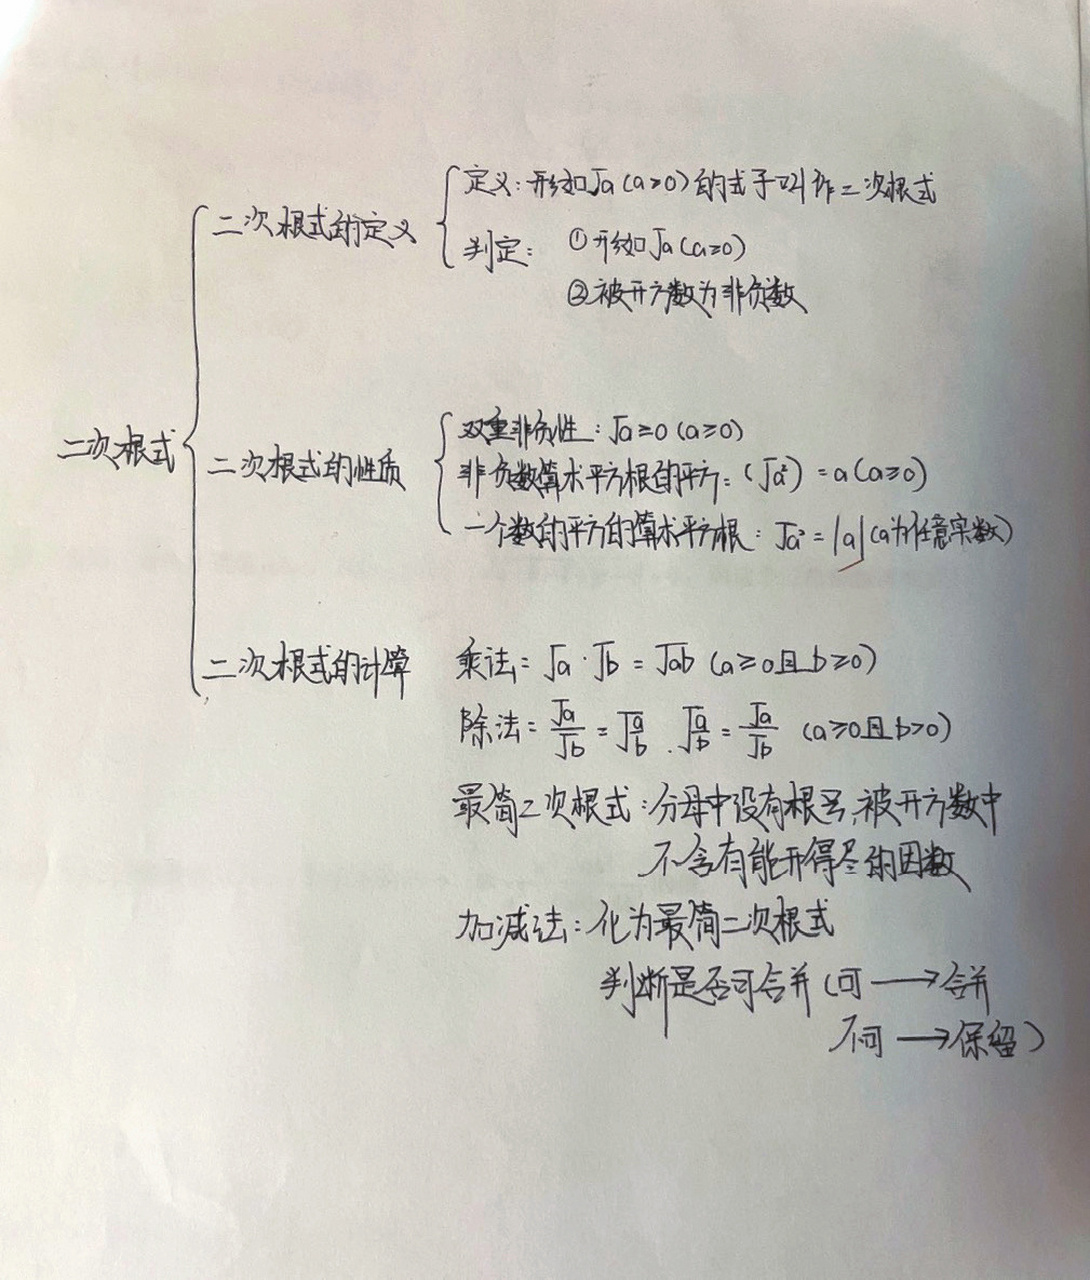 二次根式
二次根式的定义
定义：形如√a（a≥0）的式子叫作二次根式
判定： ①形如√a（a≥0）
②被开方数为非负数
二次根式的性质
双重非负性：√a≥0（a≥0）
非负数算术平方根的平方：（√a²）=a（a≥0）
一个数的平方的算术平方根：√a²=|a|（a为任意实数）
二次根式的计算
乘法：√a·√b=√ab（a≥0且b≥0）
除法：√a/√b=√(a/b)．√(a/b)=√a/√b（a≥0且b>0）
最简二次根式：分母中没有根号，被开方数中
不含有能开得尽的因数
加减法：化为最简二次根式
判断是否可合并（可→合并
不可→保留）